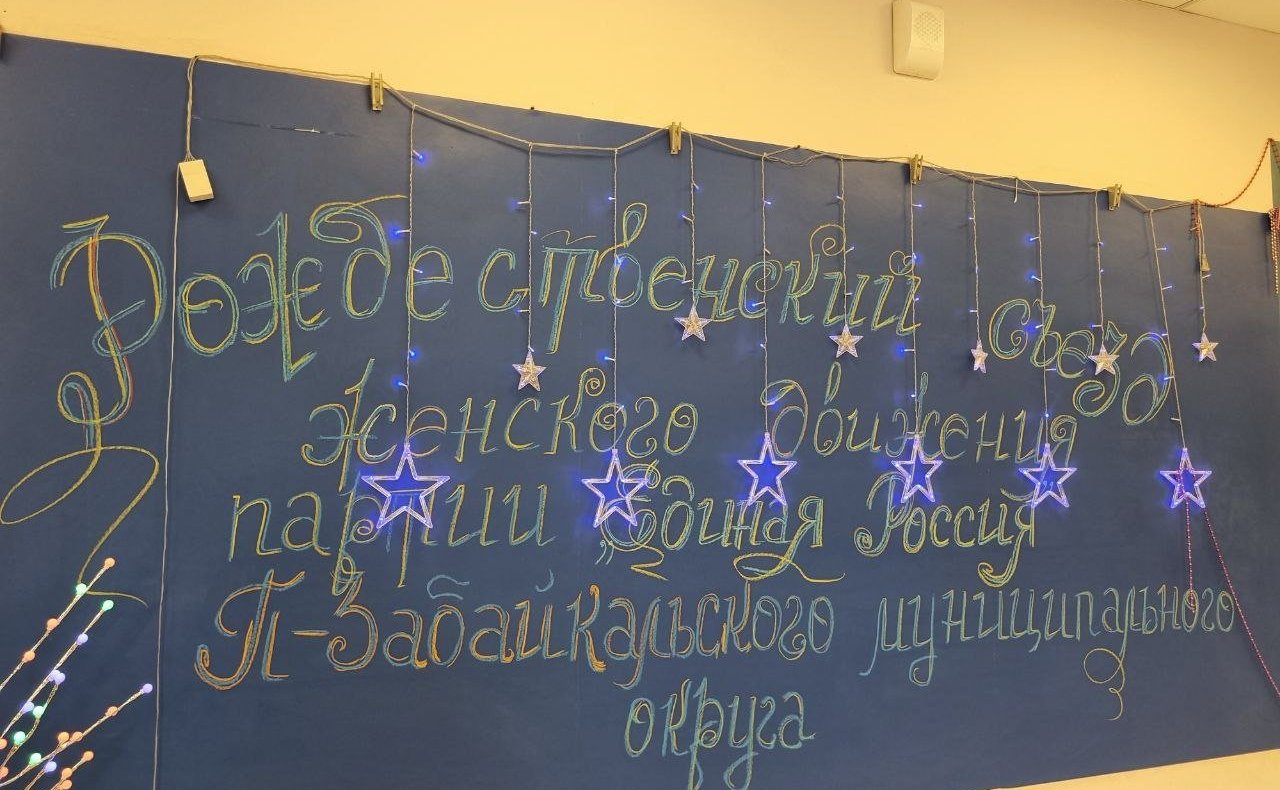 Рождественский съезд
женского движения
партии „Единая Россия"
П-Забайкальского муниципального
округа